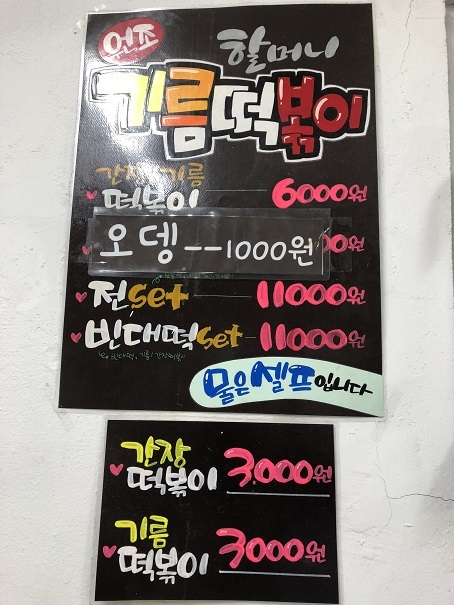 원조 할머니
기름떡볶이
간장, 기름
떡볶이 6000원
오뎅--1000원
전set 11000원
빈대떡set 11000원
물은 셀프입니다
간장
떡볶이 3.000원
기름
떡볶이 3000원